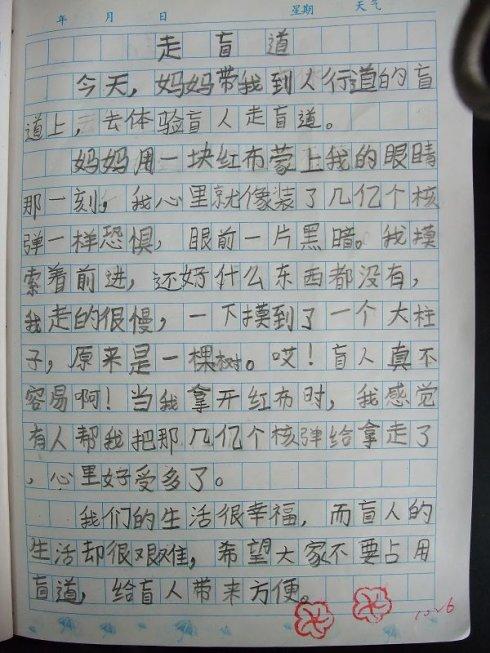 年 月 日 星期 天气
走盲道
今天，妈妈带我到人行道的盲
道上，去体验盲人走盲道。
妈妈用一块红布蒙上我的眼睛
那一刻，我心里就像装了几亿个核
弹一样恐惧，眼前一片黑暗。我摸
索着前进，还好什么东西都没有，
我走的很慢，一下摸到了一个大柱
子，原来是一棵树。哎！盲人真不
容易啊！当我拿开红布时，我感觉
有人帮我把那几亿个核弹给拿走了
，心里好受多了。
我们的生活很幸福，而盲人的
生活却很艰难，希望大家不要占用
盲道，给盲人带来方便。